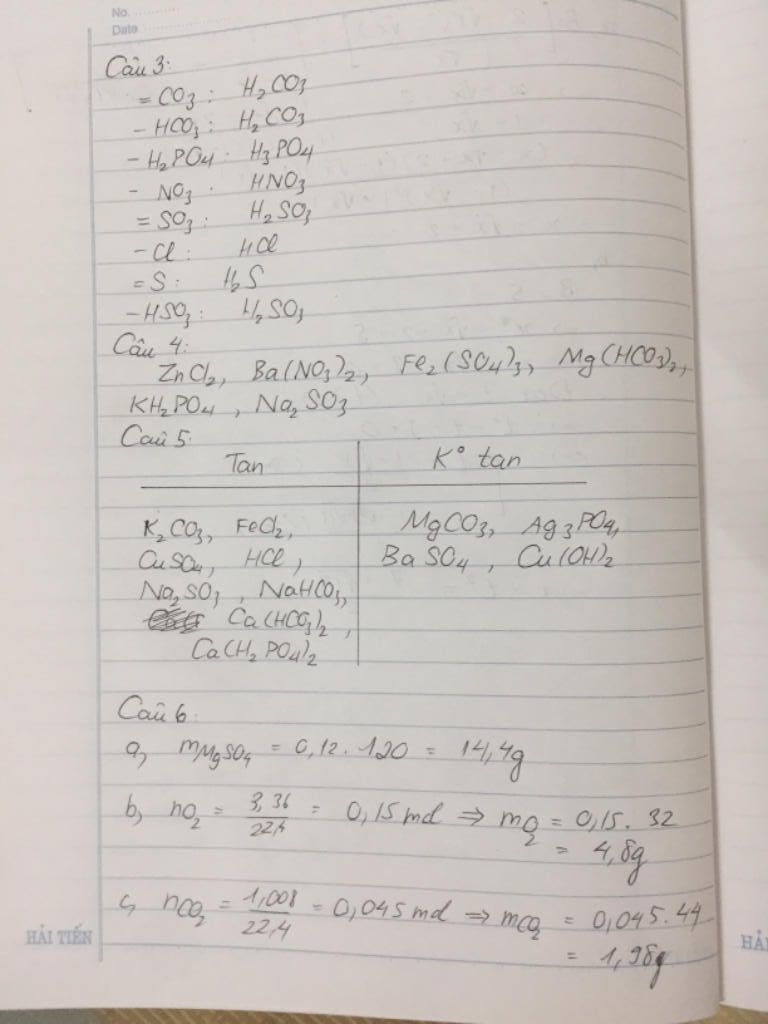 No.
Date
Câu 3:
= CO₃ : H₂CO₃
- HCO₃ : H₂CO₃
- H₂PO₄ : H₃PO₄
- NO₃ : HNO₃
= SO₃ : H₂SO₃
- Cl : HCl
= S : H₂S
- HSO₃ : H₂SO₃
Câu 4:
ZnCl₂, Ba(NO₃)₂, Fe₂(SO₄)₃, Mg(HCO₃)₂,
KH₂PO₄, Na₂SO₃
Câu 5:
Tan K° tan
K₂CO₃, FeCl₂, MgCO₃, Ag₃PO₄,
CuSO₄, HCl, BaSO₄, Cu(OH)₂
Na₂SO₃, NaHCO₃,
Ca(HCO₃)₂,
Ca(H₂PO₄)₂
Câu 6:
a, mMgSO₄ = 0,12 . 120 = 14,4g
b, nO₂ = 3,36/22,4 = 0,15 mol ⇒ mO₂ = 0,15 . 32
= 4,8g
c, nCO₂ = 1,008/22,4 = 0,045 mol ⇒ mCO₂ = 0,045 . 44
= 1,98g
HẢI TIẾN
HẢ